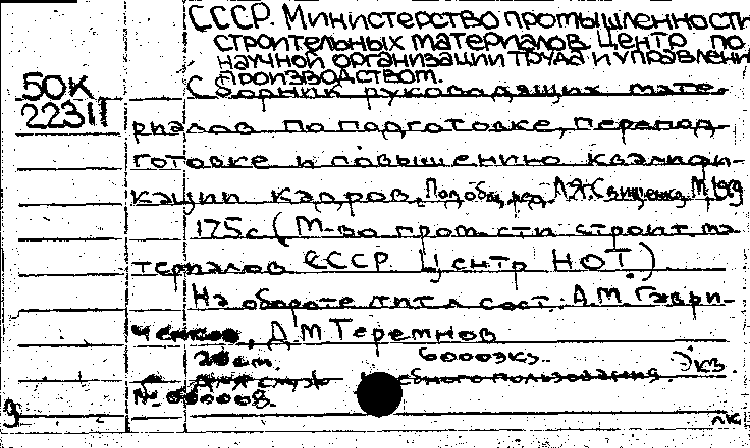 СССР. Министерство промышленности
строительных материалов. Центр по
научной организации труда и управлени
производством.
50К
22311
Сборник руководящих мате-
риалов по подготовке, перепод-
готовке и повышению квалифи-
кации кадров. Под общ. ред. М. 1969
175с. (М-во пром-сти строит. ма-
териалов СССР. Центр НОТ)
На обороте тит. л. сост.: А.М. Гаври-
ченков, Д.М Теремнов
20 см. 6000экз.
Для служебного пользования. Экз.
№ 000008.